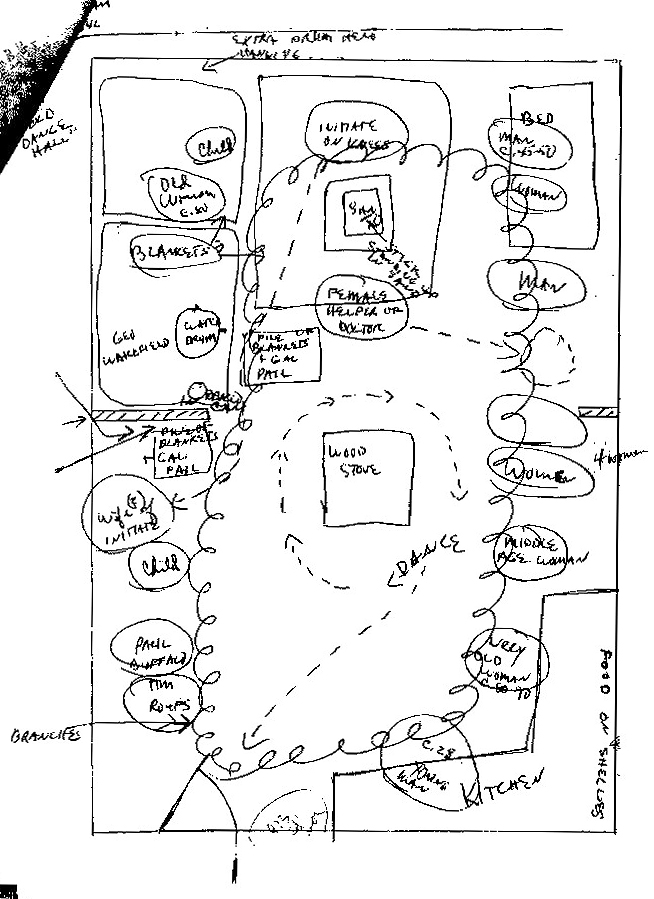 EXTRA DRUM HERE
OLD
DANCE
HALL
INITIATE
ON KNEES
BED
MAN
WOMAN
Child
OLD
WOMAN
C. 80
BLANKETS
MAN
FEMALE
HELPER OR
DOCTOR
GEO
WAKEFIELD
WATER
DRUM
PILE OF
BLANKETS
+ GAL
PAIL
PILE OF
BLANKETS
+ GAL
PAIL
WOOD
STOVE
WOMEN
4 women
Wife(?) of
INITIATE
Child
DANCE
MIDDLE
AGE WOMAN
PAUL
BUFFALO
TIM
ROUFS
VERY
OLD
WOMAN
C 60-70
BRANCHES
C. 28
YOUNG
MAN
KITCHEN
FOOD ON SHELVES